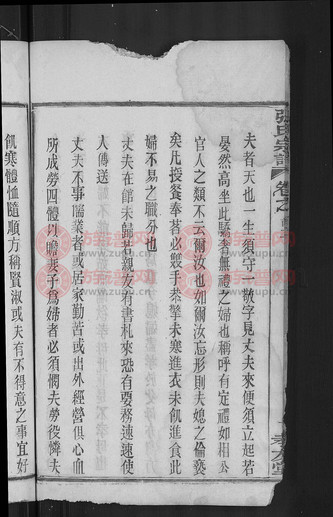 張氏宗譜
卷之
孝友堂
夫者天也一生須守一敬字見丈夫來便須立起若
晏然高坐此驕奢無禮之婦也稱呼有定禮如相公
官人之類不云爾汝也如爾汝忘形則夫媳之倫褻
矣凡授餐奉茗必雙手恭擎未寒進衣未飢進食此
婦不易之職分也
丈夫在館未歸若親友有書札來恐有要務速速使
人傳送
丈夫不事儒業者或居家勤苦或出外經營俱心血
所成勞四體以贍妻子為婦者必須憫夫勞役憐夫
飢寒體恤隨順方稱賢淑或夫有不得意之事宜好